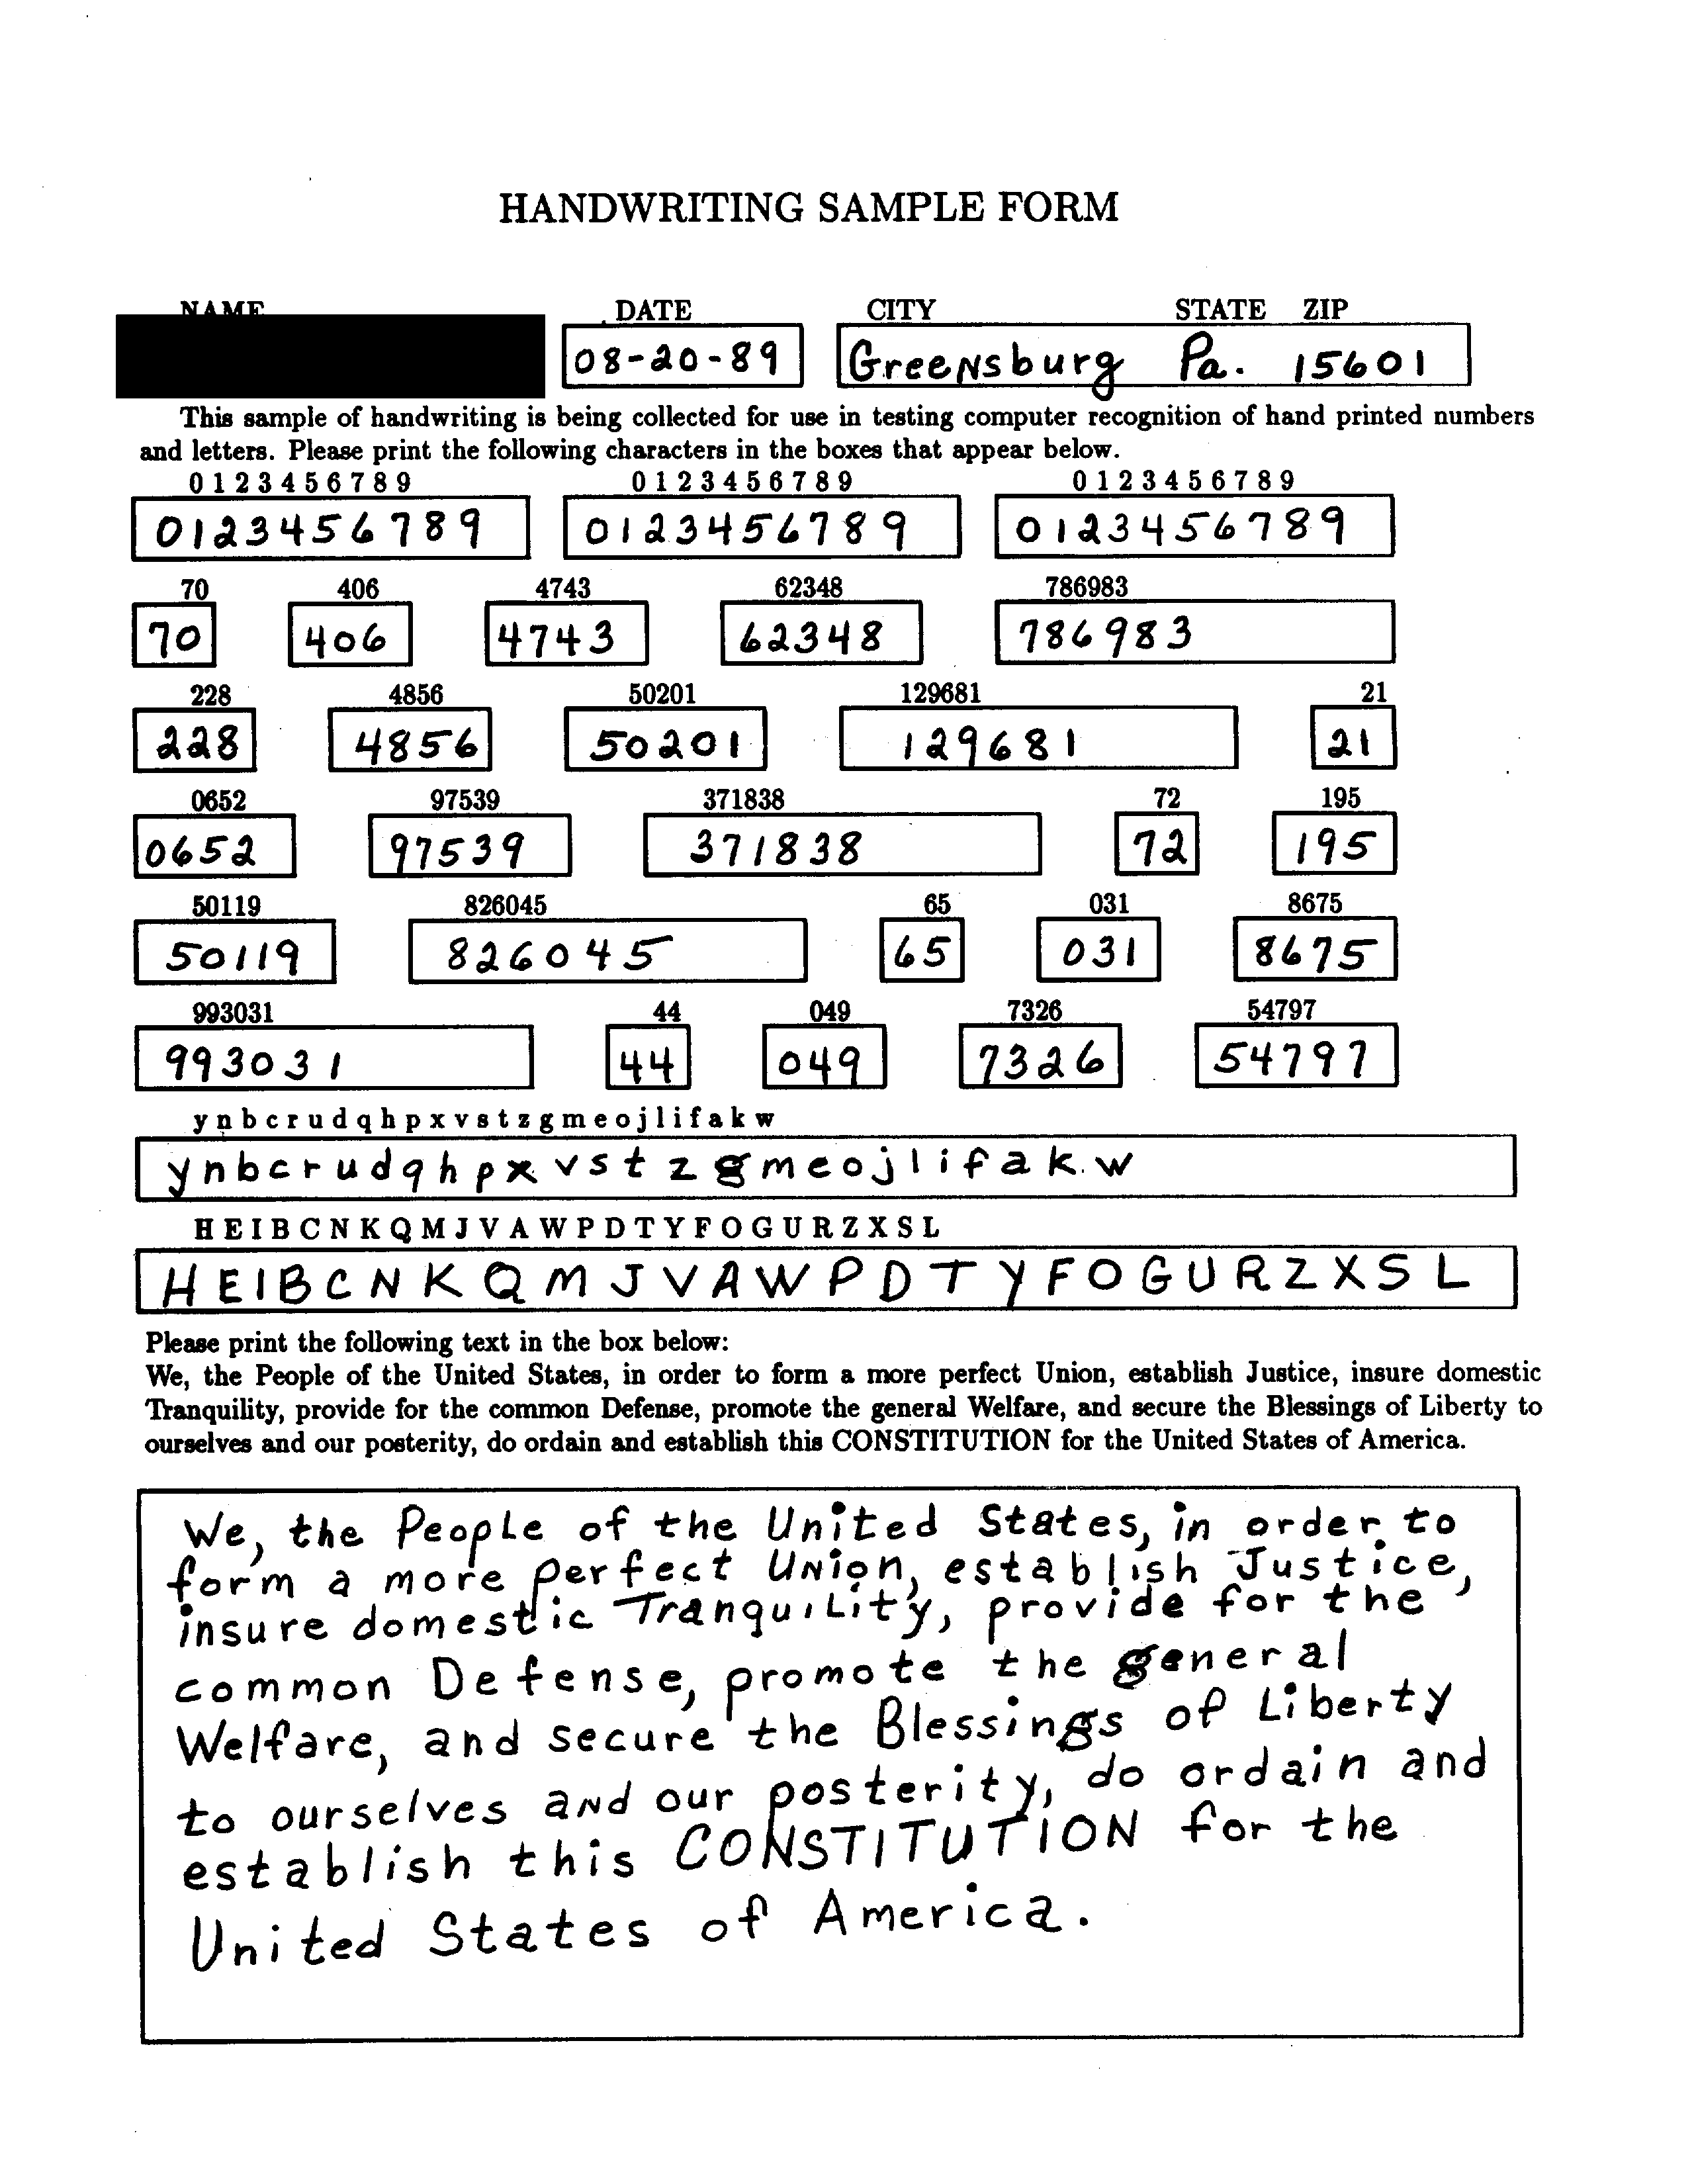 HANDWRITING SAMPLE FORM
NAME DATE CITY STATE ZIP
08-20-89 Greensburg Pa. 15601
This sample of handwriting is being collected for use in testing computer recognition of hand printed numbers
and letters. Please print the following characters in the boxes that appear below.
0 1 2 3 4 5 6 7 8 9 0 1 2 3 4 5 6 7 8 9 0 1 2 3 4 5 6 7 8 9
0123456789 0123456789 0123456789
70 406 4743 62348 786983
70 406 4743 62348 786983
228 4856 50201 129681 21
228 4856 50201 129681 21
0652 97539 371838 72 195
0652 97539 371838 72 195
50119 826045 65 031 8675
50119 826045 65 031 8675
993031 44 049 7326 54797
993031 44 049 7326 54797
y n b c r u d q h p x v s t z g m e o j l i f a k w
y n b c r u d q h p x v s t z g m e o j l i f a k w
H E I B C N K Q M J V A W P D T Y F O G U R Z X S L
H E I B C N K Q M J V A W P D T Y F O G U R Z X S L
Please print the following text in the box below:
We, the People of the United States, in order to form a more perfect Union, establish Justice, insure domestic
Tranquility, provide for the common Defense, promote the general Welfare, and secure the Blessings of Liberty to
ourselves and our posterity, do ordain and establish this CONSTITUTION for the United States of America.
We, the People of the United States, in order to
form a more perfect Union, establish Justice,
insure domestic Tranquility, provide for the
common Defense, promote the general
Welfare, and secure the Blessings of Liberty
to ourselves and our posterity, do ordain and
establish this CONSTITUTION for the
United States of America.